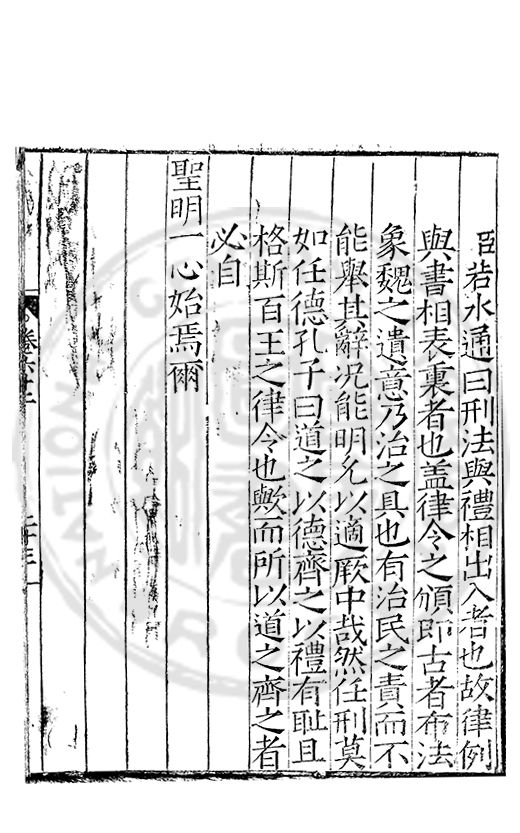 臣若水通曰刑法與禮相出入者也故律例
與書相表裏者也盖律令之頒即古者布法
象魏之遺意乃治之具也有治民之責而不
能舉其辭况能明允以適厥中哉然任刑莫
如任德孔子曰道之以德齊之以禮有耻且
格斯百王之律令也歟而所以道之齊之者
必自
聖明一心始焉爾
卷六十二
二十三